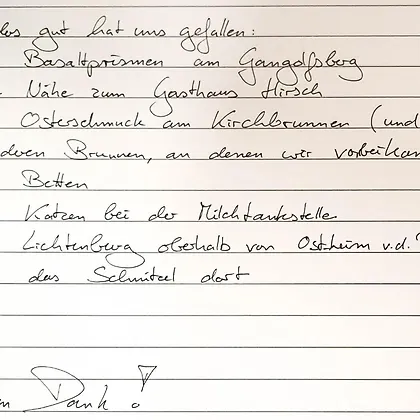 los gut hat uns gefallen:
Basaltprismen am Gangolfsberg
- Nähe zum Gasthaus Hirsch
Osterschmuck am Kirchbrunnen (und
deren Brunnen, an denen wir vorbeikam
Betten
Katzen bei der Milchtankstelle
Lichtenburg oberhalb von Ostheim v.d.
das Schnitzel dort
Dank!